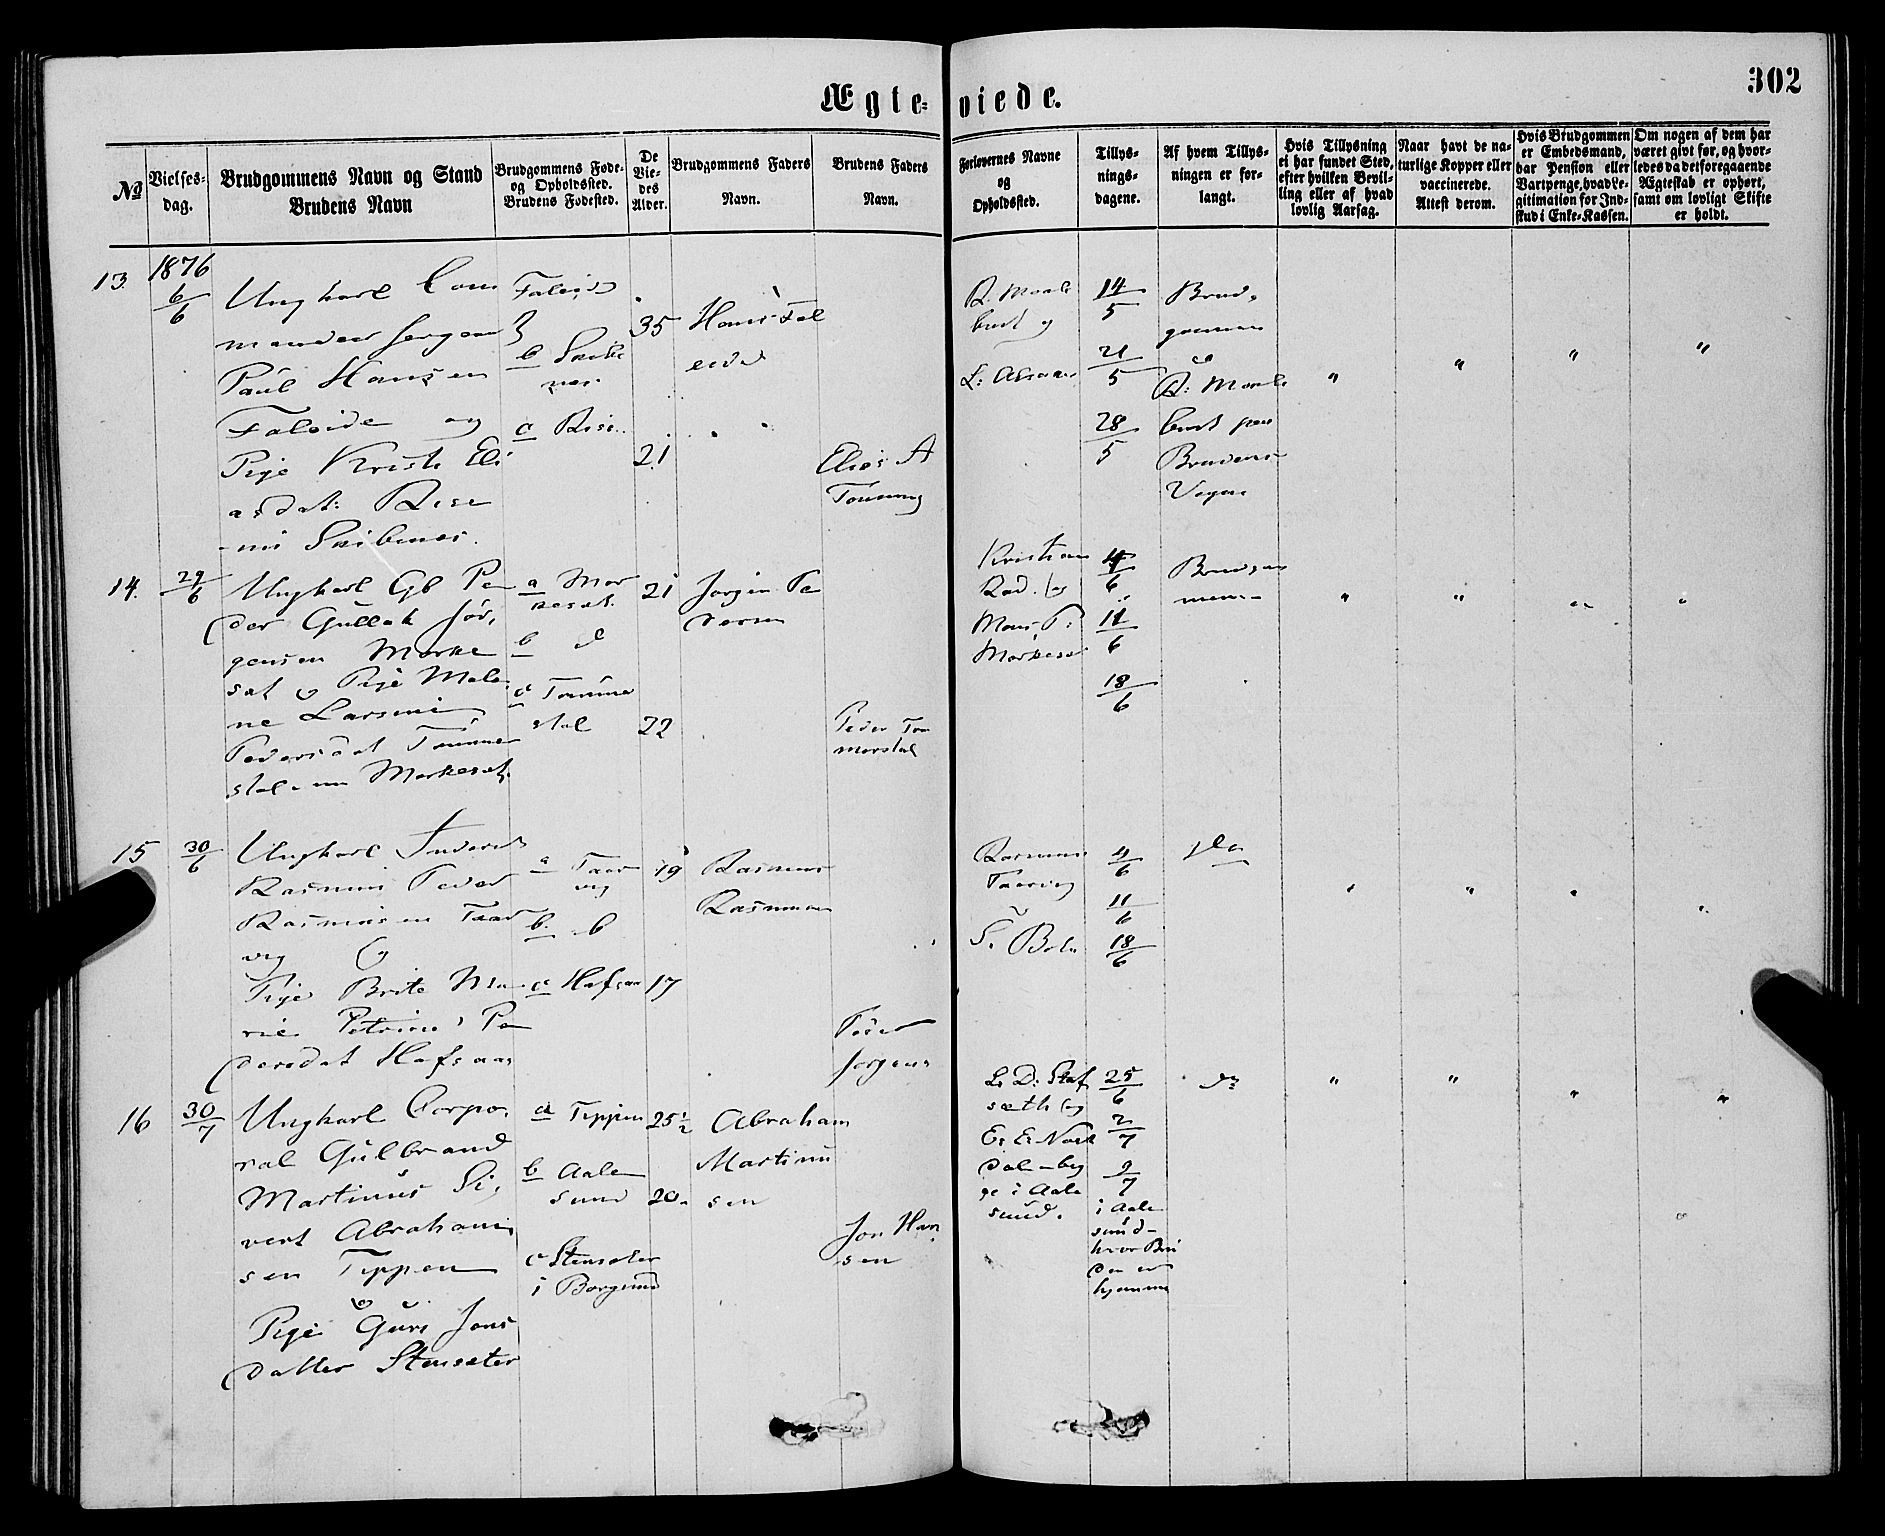 Ægte-viede.
302
No
Vielses-
dag.
Brudgommens Navn og Stand
Brudens Navn
Brudgommens Føde-
og Opholdssted.
Brudens Fødested.
De
Vie-
des
Alder.
Brudgommens Faders
Navn.
Brudens Faders
Navn.
Forlovernes Navne
og
Opholdssted.
Tillys-
nings-
dagene.
Af hvem Tillys-
ningen er for-
langt.
Hvis Tillysning
ei har fundet Sted,
efter hvilken Bevil-
ling eller af hvad
lovlig Aarsag.
Naar havt de na-
turlige Kopper eller
vaccinerede.
Attest derom.
Hvis Brudgommen
er Embedsmand,
har Pension eller
Vartpenge, hvad Le-
gitimation for Ind-
skud i Enke-Kassen.
Om nogen af dem har
været givt før, og hvor-
ledes da det foregaaende
Ægteskab er ophørt,
samt om lovligt Skifte
er holdt.
13.
1876
6/6
Ungkarl Com
mandeer Sergean
Paul Hansen
Faleide og
Pige Kristi Eli
asdat: Rise
Faleide
b
c Rise
35
21
Hans Fal
eide
Elias A
R. Maale
L:
14/5
21/5
28/5
Brud-
gommen
R: Maale
Brudens
Vegne
" " " "
14.
29/6
Ungkarl Gb Pe
der Gullak Jør,
gensen Morke
sat og Pige Male
ne Larsine
Pedersdat Tømmer
stal Morkesat.
a Mor
kesat.
b d
c Tømme
stal
21
22
Jørgen Pe
dersen
Peder Tøm
merstal
Kristian
Rød. og
Mons P:
Morkesat
4/6
11/6
18/6
Brudgom
men
" " " "
15
30/6
Ungkarl
Rasmus Peder
Rasmussen Taar
vig og
Pige Brite Ma
rie Petrine Pe
dersdat Hafsaas
a Taar
vig
b. b
c Hafsaa
19
17
Rasmus
Rasmussen
Peder
Jørgens
Rasmus
Taarvig
4/6
11/6
18/6
" " " "
16
30/7
Ungkarl Corpo,
ral Gulbrand
Martinus Si,
vert Abraham
sen Tippen
og
Pige Guri Jons
datter Stensæter
a Tippen
b Aale
sund
c Stensæter
i Borgund
25 1/2
20
Abraham
Martinu
sen
Jon Han
sen
L: D:
sæth og
E: E: Nor
dal - beg
ge i Aale
sund.
25/6
2/7
9/7
i Aale
sund -
hvor Bru
den er
hjemme
do
" " " "